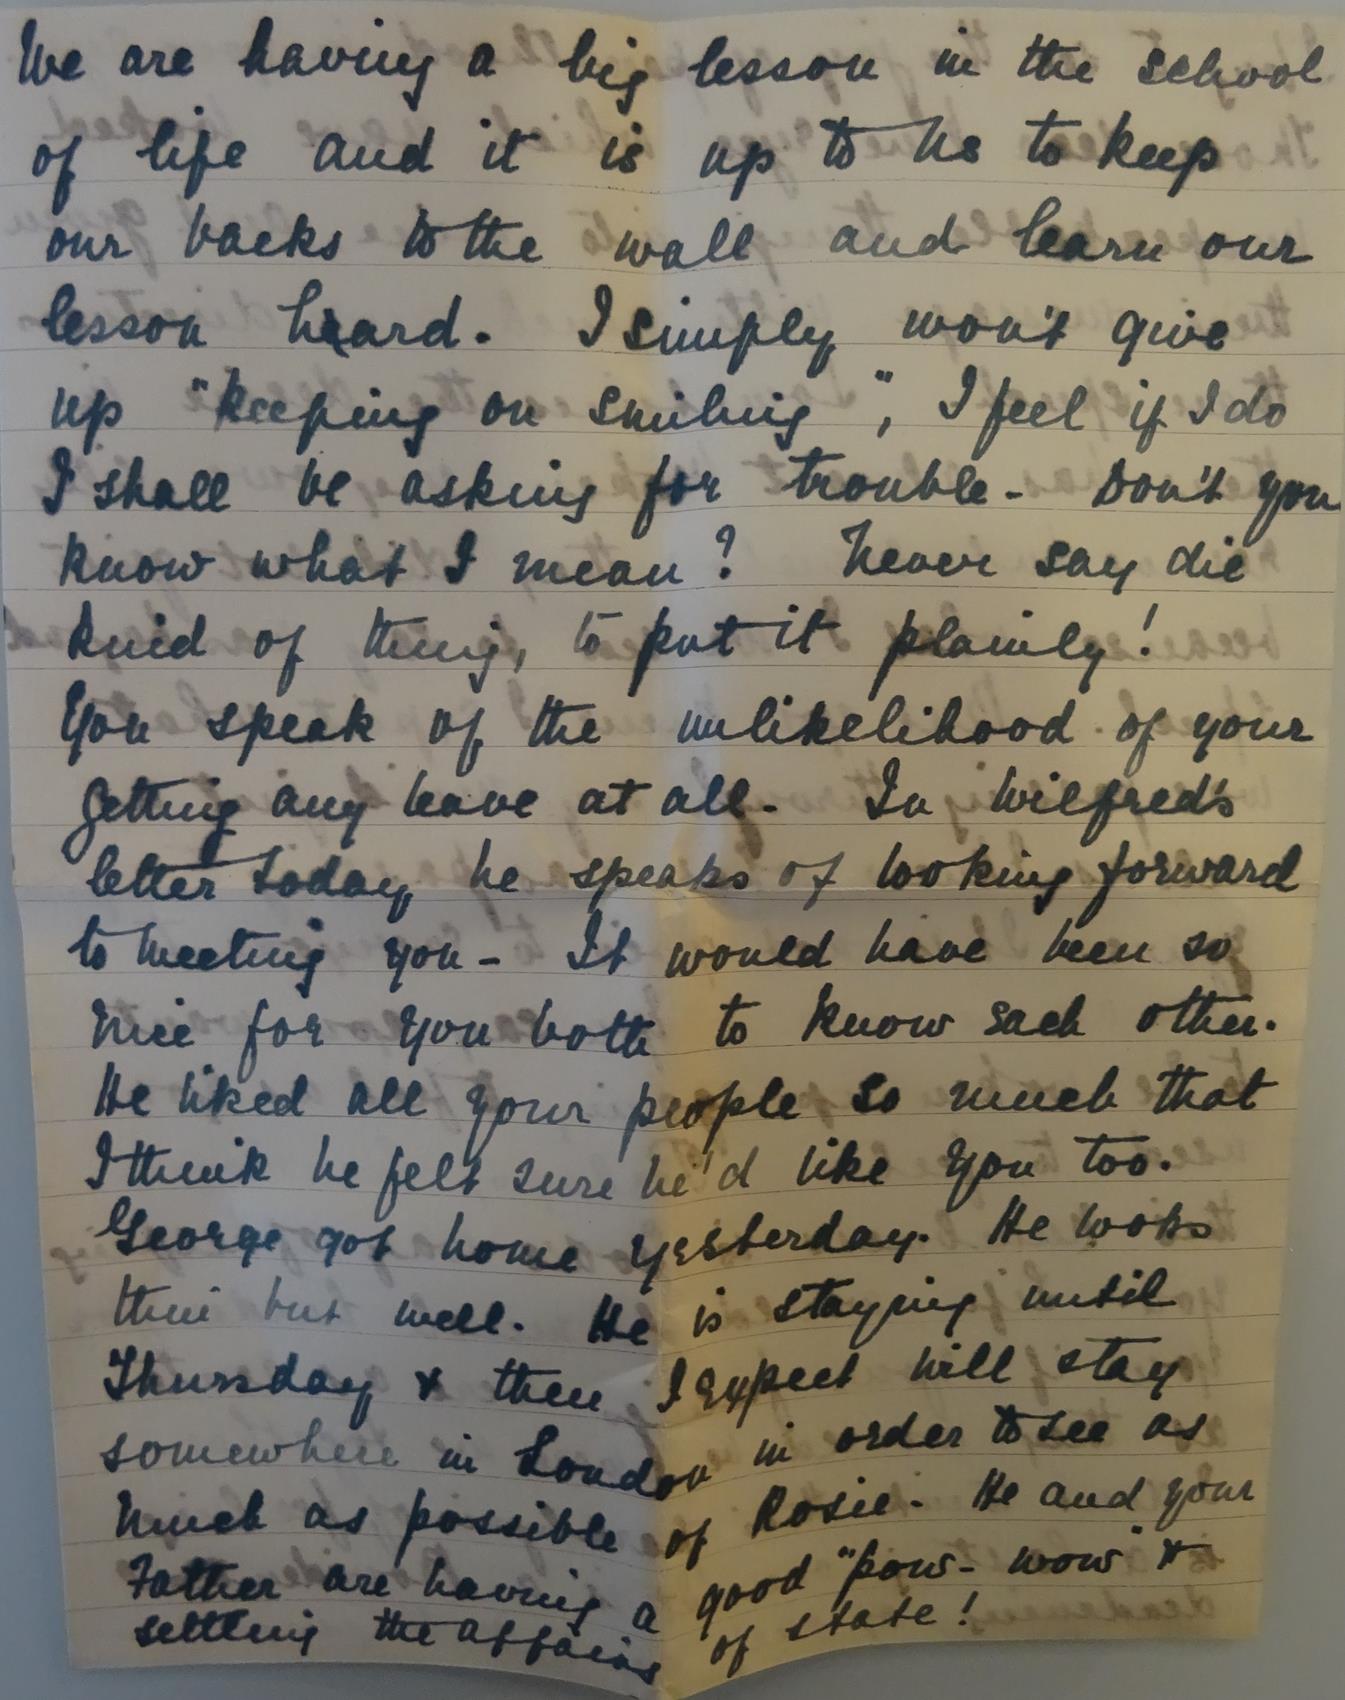 We are having a big lesson in the school
of life and it is up to us to keep
our backs to the wall and learn our
lesson hard. I simply won't give
up "keeping on smiling", I feel if I do
I shall be asking for trouble - Don't you
know what I mean? Never say die
kind of thing, to put it plainly!
You speak of the unlikelihood of your
getting any leave at all - In Wilfred's
letter today he speaks of looking forward
to meeting you - It would have been so
nice for you both to know each other.
He liked all your people so much that
I think he felt sure he'd like you too.
George got home yesterday. He looks
thin but well. He is staying until
Thursday & then I expect will stay
somewhere in London in order to see as
much as possible of Rosie. He and your
Father are having a good "pow-wow" &
settling the affairs of state!